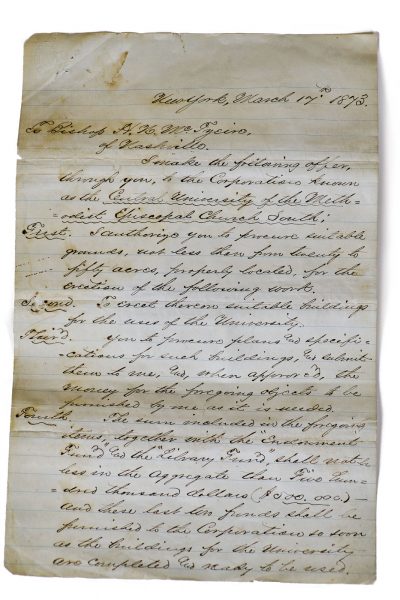 New York, March 17th 1873.
To Bishop H. N. McTyeire,
of Nashville.
I make the following offer,
through you, to the Corporation known
as the Central University of the Meth-
odist Episcopal Church South;
First. I authorize you to procure suitable
grounds, not less than from twenty to
fifty acres, properly located, for the
erection of the following work.
Second. To erect thereon suitable buildings
for the uses of the University.
Third. You to procure plans & specifi-
cations for such buildings, & submit
them to me, &, when approv'd, the
money for the foregoing objects to be
furnished by me as it is needed.
Fourth. The sum included in the foregoing
items, together with the "Endowment
Fund" & the "Library Fund", shall not be
less in the aggregate than Five Hun-
dred thousand dollars ($500.000)—
and these last two funds shall be
furnished to the Corporation so soon
as the buildings for the University
are completed & ready to be used.